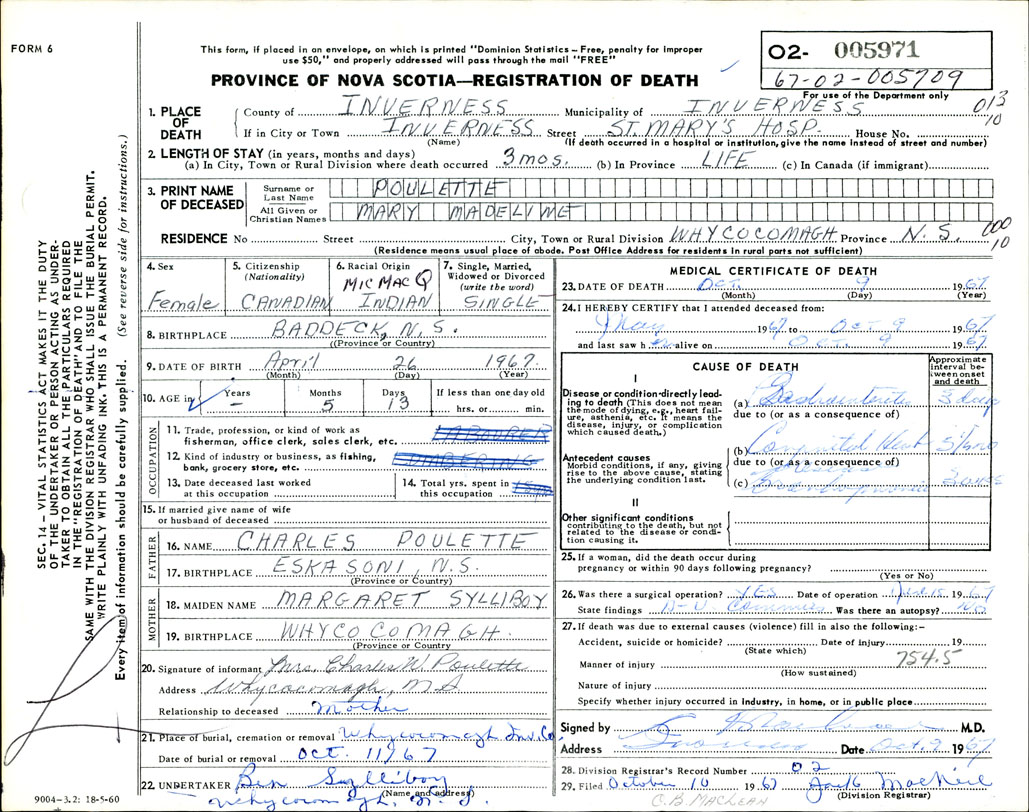 FORM 6
This form, if placed in an envelope, on which is printed "Dominion Statistics – Free, penalty for improper
use $50," and properly addressed will pass through the mail "FREE"
PROVINCE OF NOVA SCOTIA—REGISTRATION OF DEATH
02- 005971
67-02-005709
For use of the Department only
013
10
1. PLACE OF DEATH
County of INVERNESS Municipality of INVERNESS
If in City or Town INVERNESS Street ST. MARY'S HOSP. House No.
(Name) (If death occurred in a hospital or institution, give the name instead of street and number)
2. LENGTH OF STAY (in years, months and days)
(a) In City, Town or Rural Division where death occurred 3 mos. (b) In Province LIFE (c) In Canada (if immigrant)
3. PRINT NAME OF DECEASED
Surname or Last Name POULETTE
All Given or Christian Names MARY MADELINE
000
10
RESIDENCE No Street City, Town or Rural Division WHYCOCOMAGH Province N.S.
(Residence means usual place of abode. Post Office Address for residents in rural parts not sufficient)
4. Sex
Female
5. Citizenship
(Nationality)
CANADIAN
6. Racial Origin
MIC MAC Q
INDIAN
7. Single, Married,
Widowed or Divorced
(write the word)
SINGLE
8. BIRTHPLACE BADDECK, N.S.
(Province or Country)
9. DATE OF BIRTH April 26 1967
(Month) (Day) (Year)
10. AGE in Years – Months 5 Days 13 If less than one day old
hrs. or min.
OCCUPATION
11. Trade, profession, or kind of work as
fisherman, office clerk, sales clerk, etc. LABOURER
12. Kind of industry or business, as fishing,
bank, grocery store, etc. LUMBERING
13. Date deceased last worked
at this occupation
14. Total yrs. spent in
this occupation
15. If married give name of wife
or husband of deceased
FATHER
16. NAME CHARLES POULETTE
17. BIRTHPLACE ESKASONI, N.S.
(Province or Country)
MOTHER
18. MAIDEN NAME MARGARET SYLLIBOY
19. BIRTHPLACE WHYCOCOMAGH.
(Province or Country
20. Signature of informant Mrs. Charles W. Poulette
Address Whycocomagh, N.S.
Relationship to deceased Mother
21. Place of burial, cremation or removal Whycocomagh Inv. Co.
Date of burial or removal Oct. 11/67
22. UNDERTAKER Ben Sylliboy
(Name and address)
Whycocomagh, N.S.
9004-3.2: 18-5-60
MEDICAL CERTIFICATE OF DEATH
23. DATE OF DEATH Oct. 9 1967
(Month) (Day) (Year)
24. I HEREBY CERTIFY that I attended deceased from:
May 1967 to Oct 9 1967
and last saw h alive on Oct. 9 1967
CAUSE OF DEATH
Approximate interval between onset and death
I
Disease or condition directly leading to death (This does not mean
the mode of dying, e.g., heart failure, asthenia, etc. It means the
disease, injury, or complication
which caused death.)
(a) Gastroenteritis 3 days
due to (or as a consequence of)
Antecedent causes
Morbid conditions, if any, giving
rise to the above cause, stating
the underlying condition last.
(b) Congenital Heart 5/12
due to (or as a consequence of)
(c) Bronchopneumonia 3
II
Other significant conditions
contributing to the death, but not
related to the disease or condition causing it.
25. If a woman, did the death occur during
pregnancy or within 90 days following pregnancy?
(Yes or No)
26. Was there a surgical operation? YES Date of operation 1967
State findings Was there an autopsy? NO
27. If death was due to external causes (violence) fill in also the following:–
Accident, suicide or homicide? Date of injury 19
(State which)
754.5
Manner of injury
(How sustained)
Nature of injury
Specify whether injury occurred in industry, in home, or in public place
Signed by M.D.
Address Inverness Date Oct. 9 1967
28. Division Registrar's Record Number 02
29. Filed October 10 1967 Jack MacNeil
(Division Registrar)
C.B. MACLEAN
SEC. 14 – VITAL STATISTICS ACT MAKES IT THE DUTY
OF THE UNDERTAKER OR PERSON ACTING AS UNDERTAKER TO OBTAIN ALL THE PARTICULARS REQUIRED
IN THE "REGISTRATION OF DEATH" AND TO FILE THE
SAME WITH THE DIVISION REGISTRAR WHO SHALL ISSUE THE BURIAL PERMIT.
WRITE PLAINLY WITH UNFADING INK. THIS IS A PERMANENT RECORD.
Every item of information should be carefully supplied. (See reverse side for instructions.)